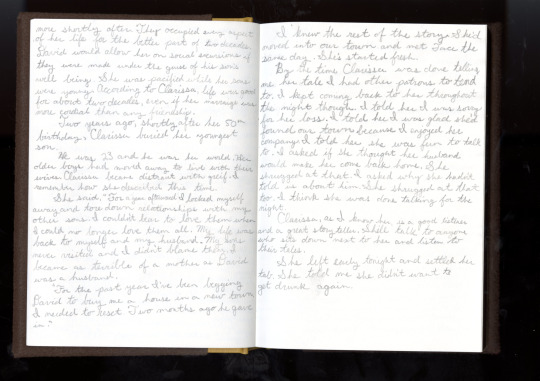 more shortly after. They occupied every aspect
of her life for the better part of two decades.
David would allow her on social excursions if
they were made under the guise of his son's
well being. She was pacified while her sons
were young. According to Clarissa, life was good
for about two decades, even if her marriage was
more cordial than any friendship.
Two years ago, shortly after her 50th
birthday, Clarissa buried her youngest
son.
He was 23 and he was her world. Her
older boys had moved away to live with their
wives. Clarissa became distant with grief. I
remember how she described this time.
She said, "For a year afterward I locked myself
away and tore down relationships with my
other sons. I couldn't bear to love them when
I could no longer love them all. My life was
back to myself and my husband. My boys
never visited and I didn't blame them. I
became as terrible of a mother as David
was a husband.
"For the past year I've been begging
David to buy me a house in a new town.
I needed to reset. Two months ago he gave
in."
I knew the rest of the story. She'd
moved into our town and met since the
same day. She's started fresh.
By the time Clarissa was done telling
me her tale I had other patrons to tend
to. I kept coming back to her throughout
the night though. I told her I was sorry
for her loss. I told her I was glad she'd
found our town because I enjoyed her
company. I told her she was fun to talk
to. I asked if she thought her husband
would make her come back home. She
shrugged at that. I asked why she hadn't
told us about him. She shrugged at that
too. I think she was done talking for the
night.
Clarissa, as I know her, is a good listener
and a great story teller. She'll talk to anyone
who sits down next to her and listen to
their tales.
She left early tonight and settled her
tab. She told me she didn't want to
get drunk again.